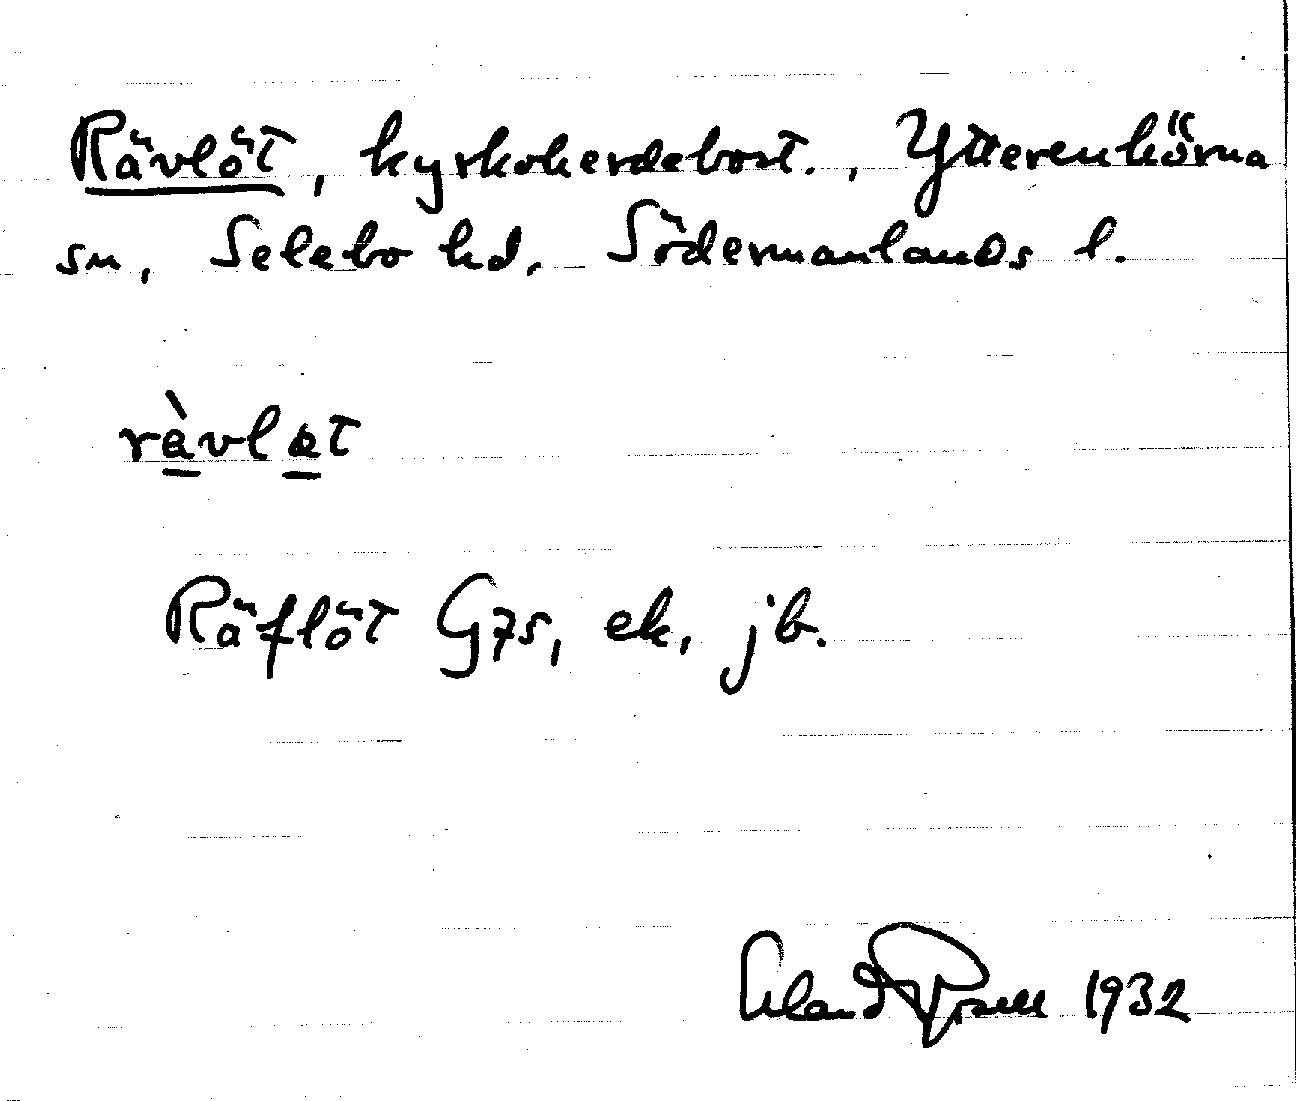 Rävlöt, kyrkoherdebost., Ytterenhörna
sn, Selebo hd, Södermanlands l.
ràvlat
Räflöt G7s, ek, jb.
1932